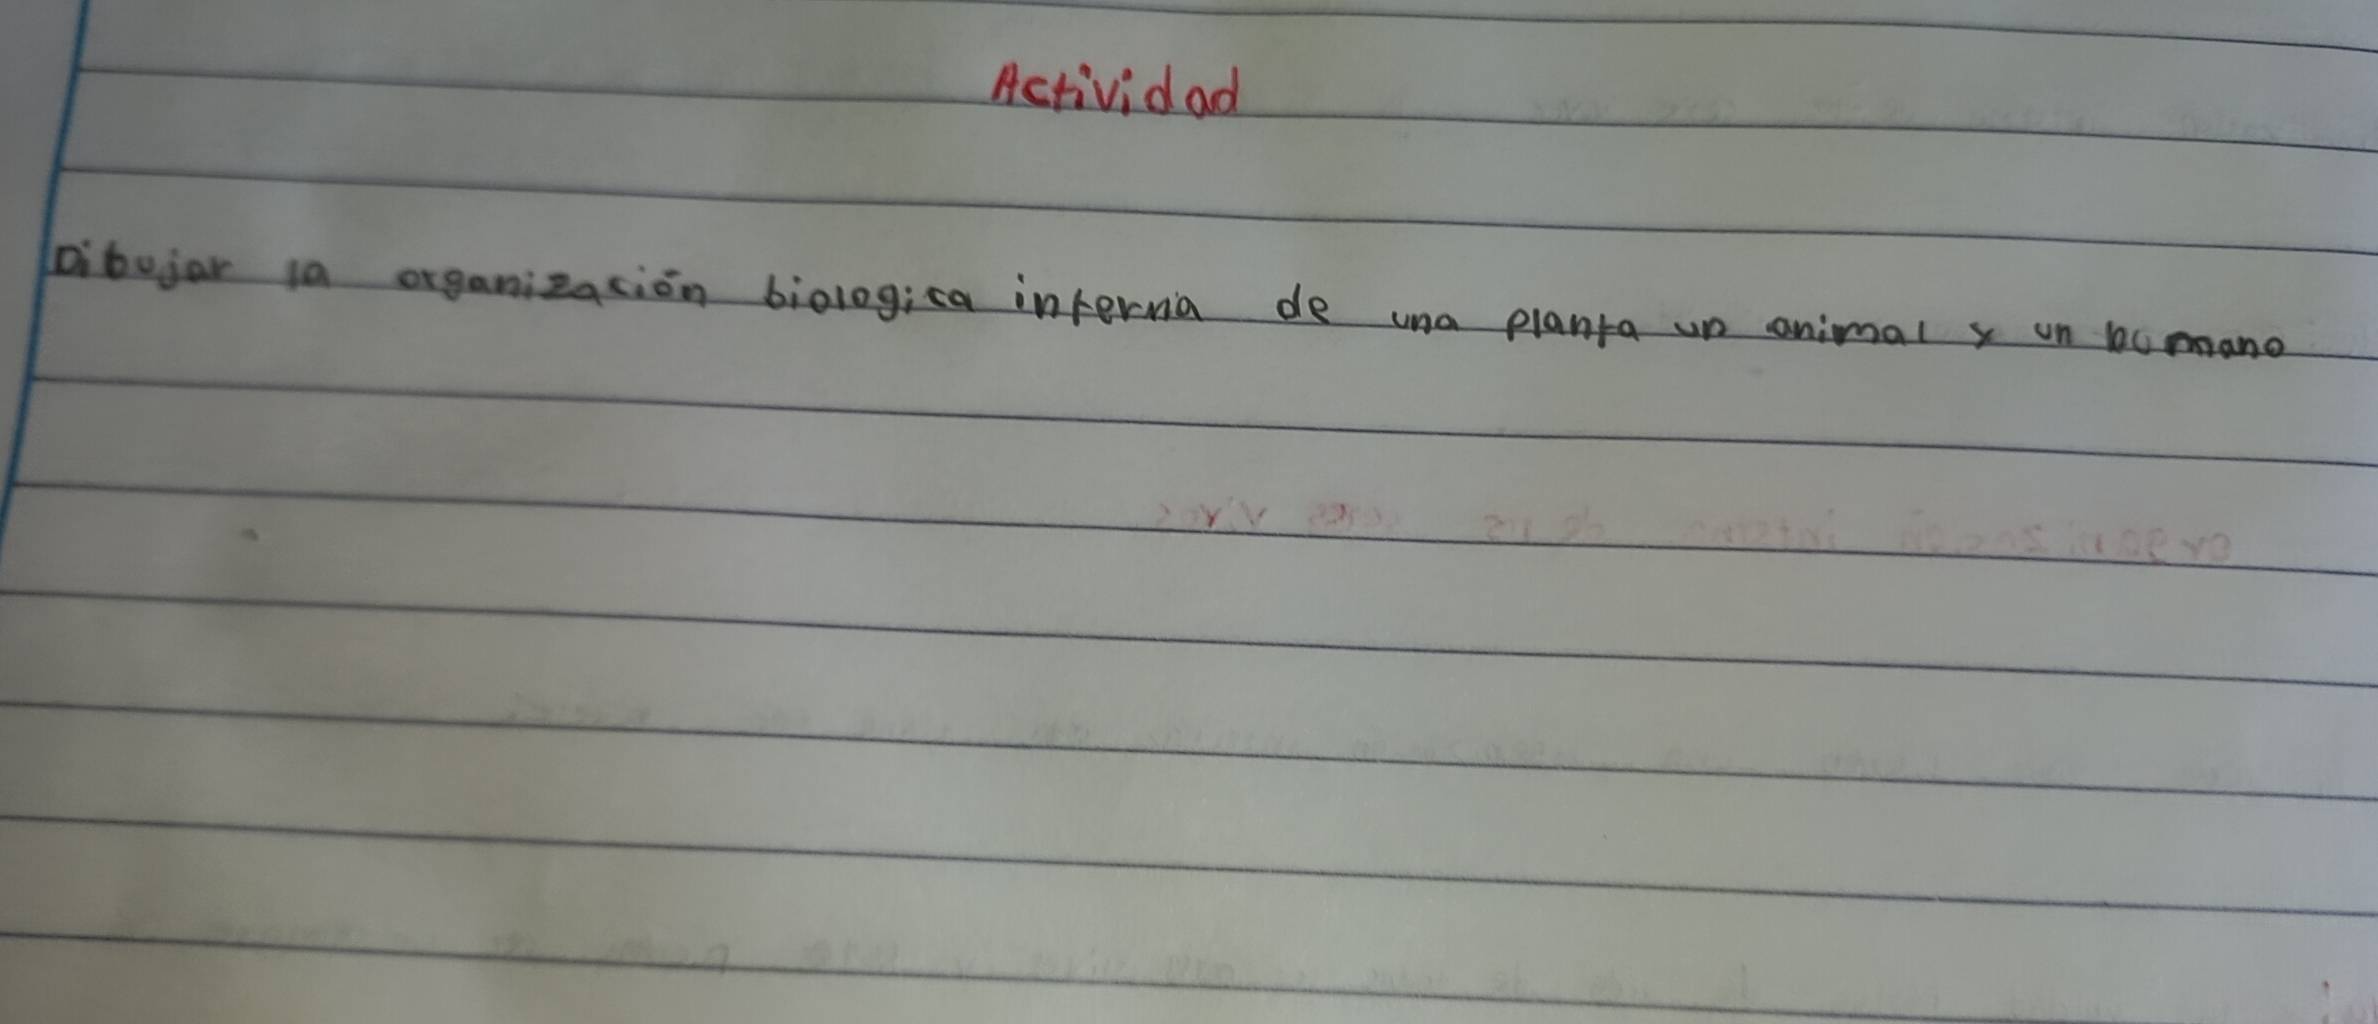 Actividad
Dibujar la organización biologica interna de una planta un animal y un humano